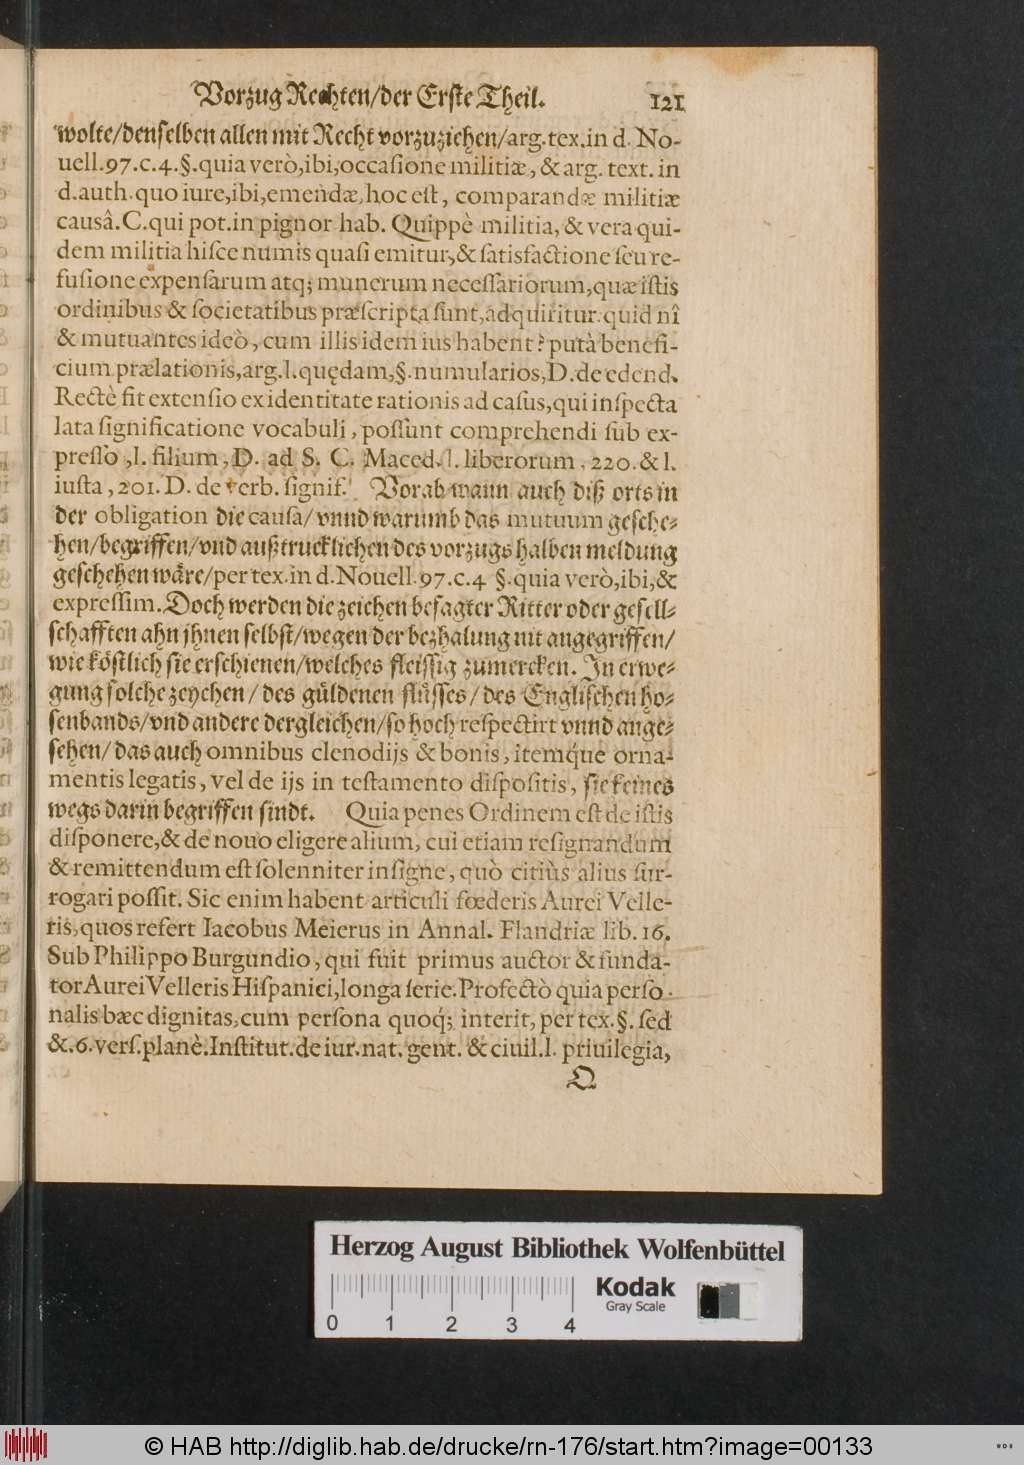 Vorzug Rechten/der Erste Theil. 121
wolte/denselben allen mit Recht vorzuziehen/arg.tex.in d. No-
uell.97.c.4.§.quia verò,ibi,occaſione militiæ, & arg. text. in
d.auth.quo iure,ibi,emendæ,hoc eſt, comparandæ militiæ
causâ.C.qui pot.in pignor hab. Quippè militia, & vera qui-
dem militia hiſce numis quaſi emitur,& ſatisfactione ſeu re-
fuſione expenſarum atq; munerum neceſſariorum,quæ iſtis
ordinibus & ſocietatibus præſcripta ſunt,adquiritur.quid nî
& mutuantes ideò, cum illis idem ius habent? putà benefi-
cium prælationis,arg.l.quędam,§.numularios,D.de edend.
Rectè fit extenſio ex identitate rationis ad caſus,qui inſpecta
lata ſignificatione vocabuli, poſſunt comprehendi ſub ex-
preſſo, l. filium, D. ad S. C. Maced. l. liberorum, 220. & l.
iuſta, 201. D. de verb. ſignif. Vorab wann auch diß orts in
der obligation die cauſa/ vnnd warumb das mutuum geſche-
hen/begriffen/vnd außtrucklichen des vorzugs halben meldung
geſchehen wäre/per tex.in d.Nouell.97.c.4 §.quia verò,ibi,&
expreſſim. Doch werden die zeichen beſagter Ritter oder geſell-
ſchafften ahn jhnen ſelbſt/wegen der bezhalung nit angegriffen/
wie köſtlich ſie erſchienen/welches fleiſſig zumercken. In erwe-
gung ſolche zeychen / des güldenen flüſſes / des Engliſchen ho-
ſenbands/vnd andere dergleichen/ſo hoch reſpectirt vnnd ange-
ſehen/ das auch omnibus clenodijs & bonis, itemq́ue orna-
mentis legatis, vel de ijs in teſtamento diſpoſitis, ſie keines
wegs darin begriffen ſindt. Quia penes Ordinem eſt de iſtis
diſponere,& de nouo eligere alium, cui etiam reſignandum
& remittendum eſt ſolenniter inſigne, quò citiùs alius ſur-
rogari poſſit. Sic enim habent articuli fœderis Aurei Velle-
ris, quos refert Iacobus Meierus in Annal. Flandriæ lib. 16.
Sub Philippo Burgundio, qui fuit primus auctor & funda-
tor Aurei Velleris Hiſpanici, longa ſerie. Profectò quia perſo-
nalis hæc dignitas, cum perſona quoq́; interit, per tex. §. ſed
&.6.verſ.planè.Inſtitut.de iur.nat. gent. & ciuil.l. priuilegia,
Q
Herzog August Bibliothek Wolfenbüttel
Kodak
Gray Scale
0 1 2 3 4
© HAB http://diglib.hab.de/drucke/rn-176/start.htm?image=00133